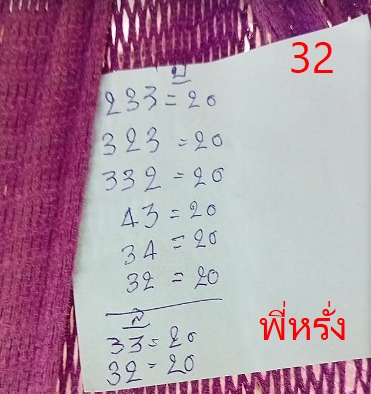 32
บ
233 = 20
323 = 20
332 = 20
43 = 20
34 = 20
32 = 20
ล
33 = 20
32 = 20
พี่หรั่ง